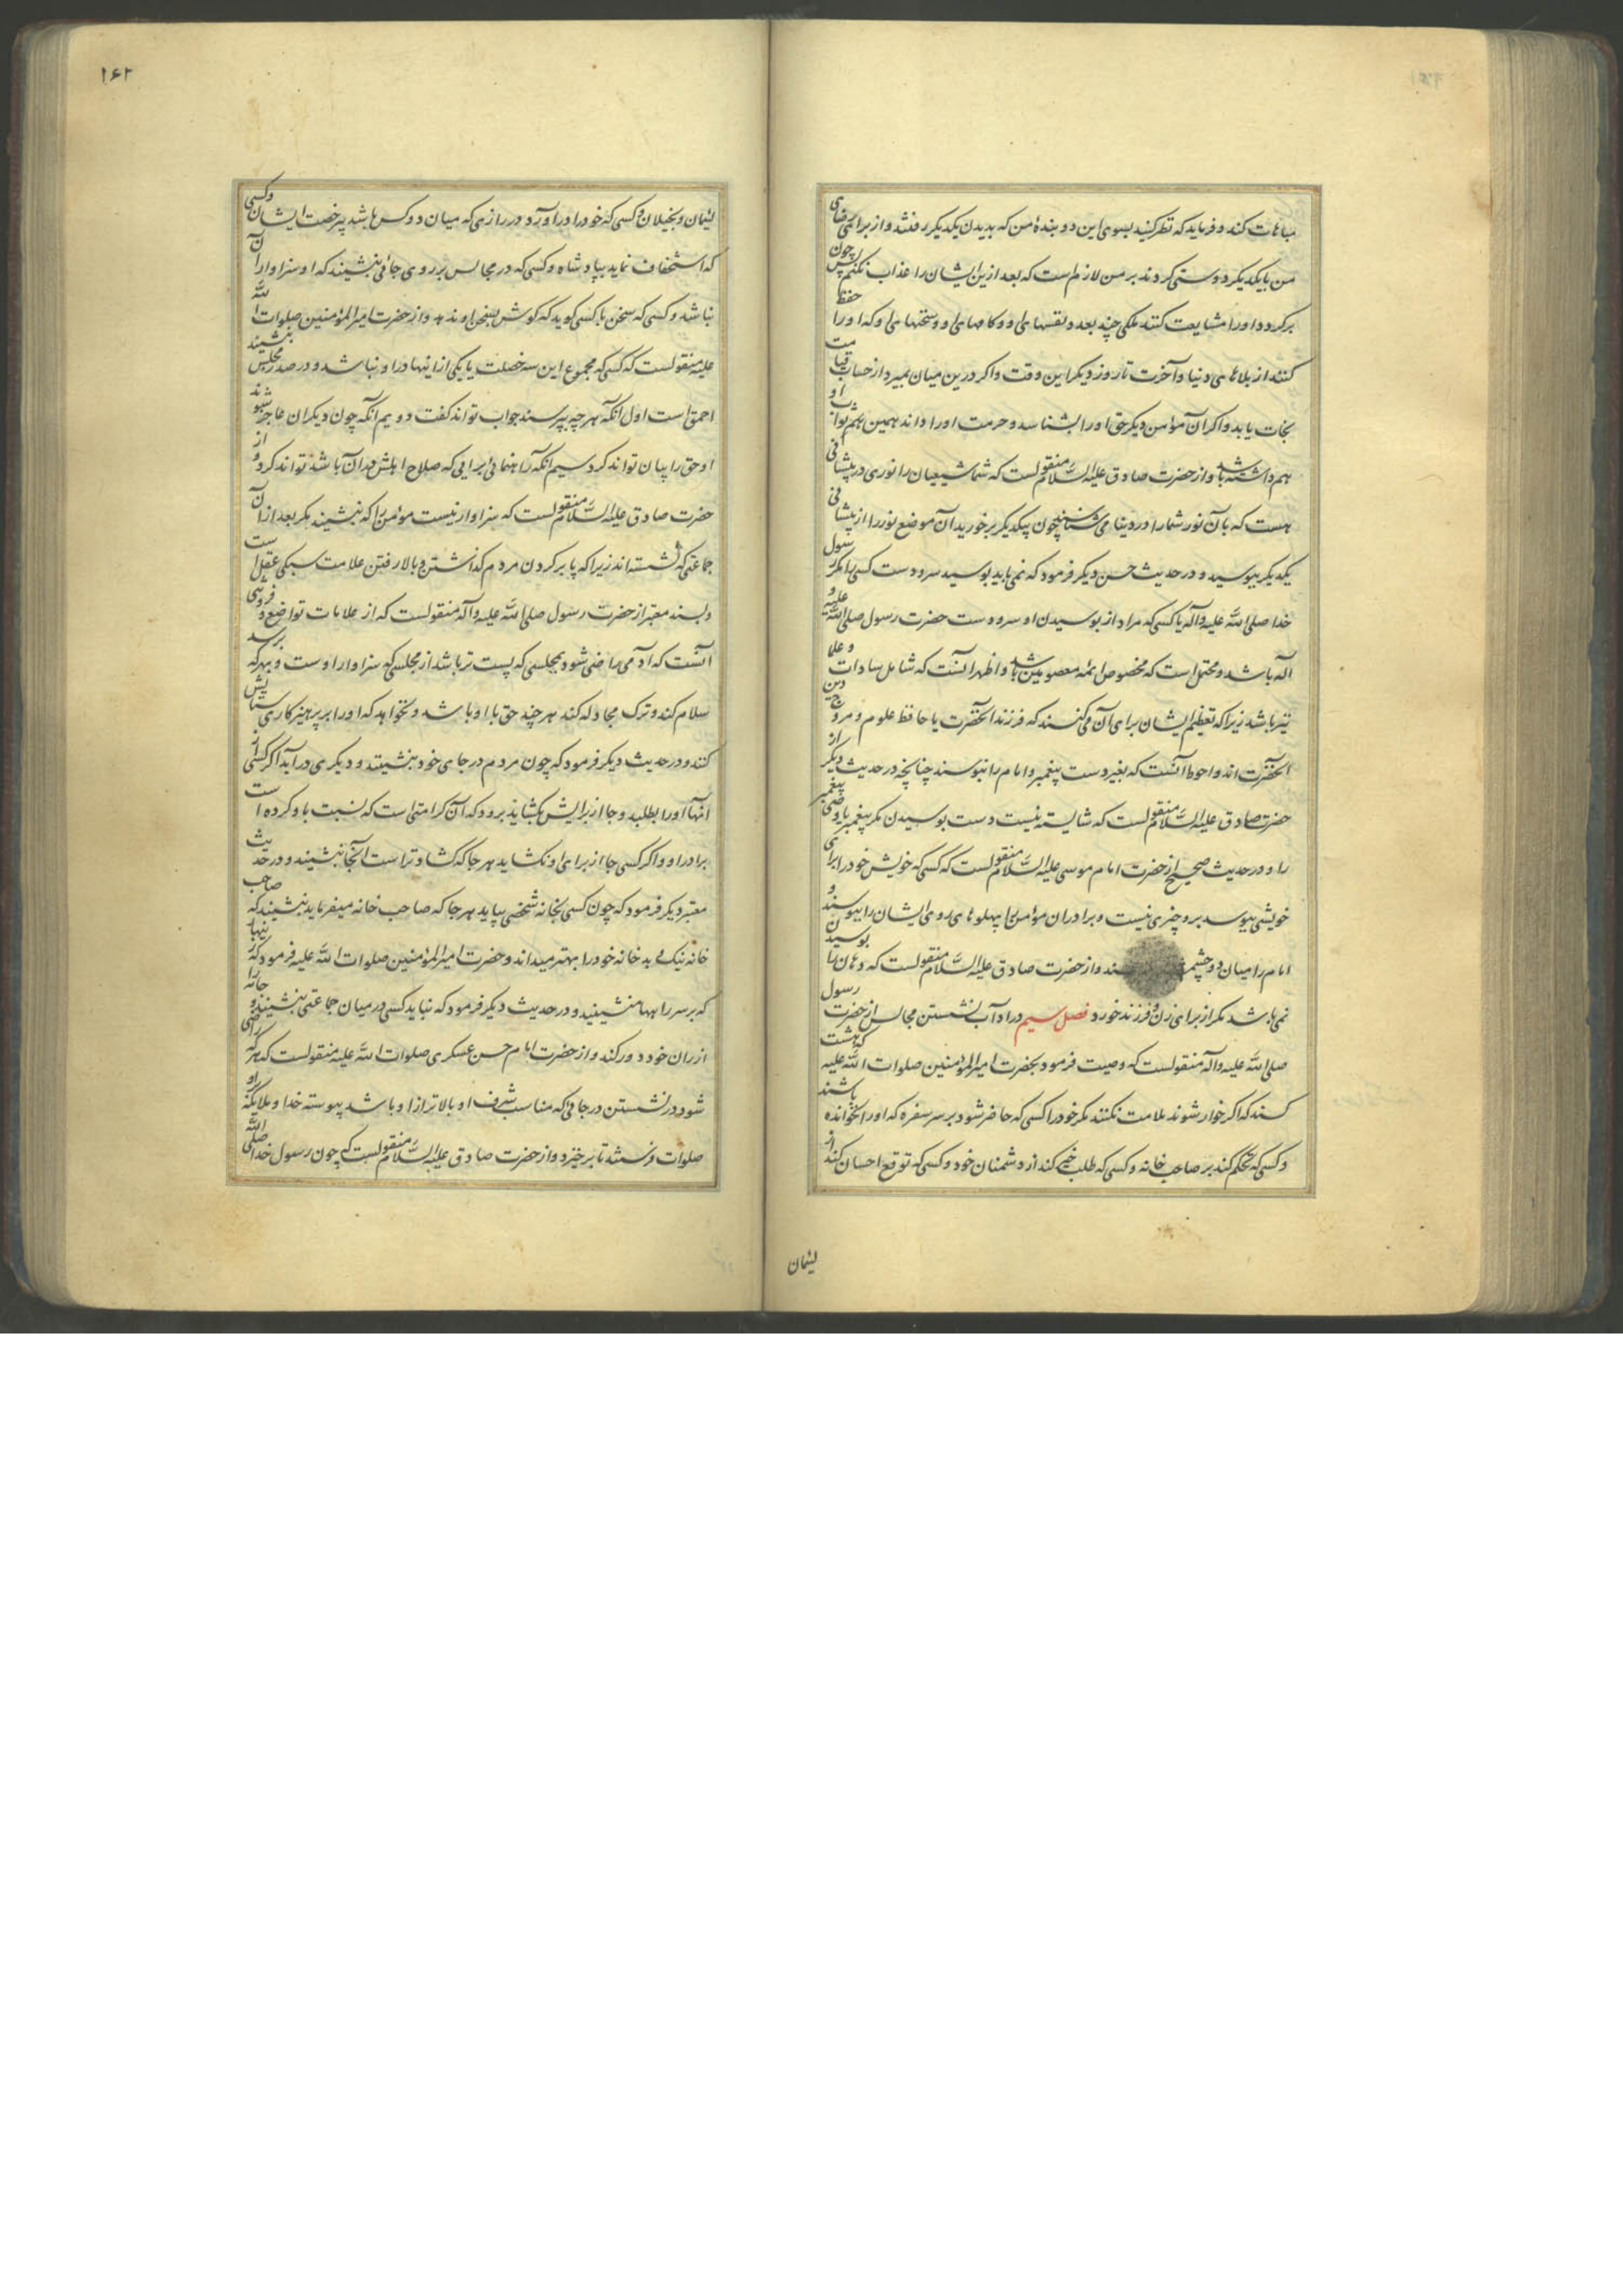 مباهات کند و فرماید که نظر کنید بسوی این دو بندهٔ من که بدیدن یکدیگر رفتند و از برای رضای
من بایکدیگر دوستی کردند بر من لازم است که بعد ازین ایشان را عذاب نکنم پس چون
برگردد او را مشایعت کنند ملکی چند بعدد نفسهای او و کامهای او و سخنهای او که او را حفظ
کنند از بلاهای دنیا و آخرت تا روز دیگر این وقت و اگر درین میان بمیرد از حساب قیامت
نجات یابد و اگر آن مؤمن دیگر حق او را بشناسد و حرمت او را داند همین ثواب او
هم داشته باشد و از حضرت صادق علیه السلام منقولست که شما شیعیان را نوری در پیشانی
هست که بآن نور شما را در دنیا می شناسند چون بیکدیگر برخورید آن موضع نور را از پیشانی
یکدیگر ببوسید و در حدیث حسن دیگر فرمود که نمی باید بوسید سر و دست کسی را مگر رسول
خدا صلی الله علیه و آله یا کسی که مراد از بوسیدن او سر و دست حضرت رسول صلی الله علیه و
آله باشد و محتمل است که مخصوص ائمه معصومین باشد و اظهر آنست که شامل سادات و علما
نیز باشد زیرا که تعظیم ایشان برای آن می کنند که فرزند آنحضرت یا حافظ علوم و مروج دین
آنحضرت اند و احوط آنست که بغیر دست پیغمبر و امام را نبوسند چنانچه در حدیث دیگر از
حضرت صادق علیه السلام منقولست که شایسته نیست دست بوسیدن مگر پیغمبر یا وصی پیغمبر
را و در حدیث صحیح از حضرت امام موسی علیه السلام منقولست که کسی که خویش خود را برای
خویشی ببوسد برو چیزی نیست و برادران مؤمن را پهلوهای روی ایشان را ببوسند و
امام را میان دو چشم و از حضرت صادق علیه السلام منقولست که دهان را بوسیدن
نمی باشد مگر از برای زن و فرزند خورد فصل سیم در آداب نشستن مجالس از حضرت رسول
صلی الله علیه و آله منقولست که وصیت فرمود بحضرت امیر المؤمنین صلوات الله علیه که هشت
کسند که اگر خوار شوند ملامت نکنند مگر خود را کسی که حاضر شود بر سر سفره که او را نخوانده باشند
و کسی که تحکم کند بر صاحب خانه و کسی که طلب خیر کند از دشمنان خود و کسی که توقع احسان کند از
لئیمان
۱۶۲
لئیمان و بخیلان و کسی که خود را در آورد در رازی که میان دو کس باشد بی رخصت ایشان و کسی
که استخفاف نماید بپادشاه و کسی که در مجالس بر روی جائی بنشیند که او سزاوار آن
نباشد و کسی که سخن با کسی گوید که گوش بسخن او ندهد و از حضرت امیر المؤمنین صلوات الله
علیه منقولست که کسی که مجموع این سه خصلت یا یکی از اینها در او نباشد و در صدر مجلس بنشیند
احمق است اول آنکه هر چه بپرسند جواب تواند گفت دویم آنکه چون دیگران عاجز شوند از
او حق را بیان تواند کرد سیم آنکه راهنمائی برایی که صلاح اهلش در آن باشد تواند کرد و از
حضرت صادق علیه السلام منقولست که سزاوار نیست مؤمن را که بنشیند مگر بعد از آن
جماعتی که نشسته اند زیرا که پا بر گردن مردم گذاشتن و بالا رفتن علامت سبکی عقل است
و بسند معتبر از حضرت رسول صلی الله علیه و آله منقولست که از علامات تواضع و فروتنی
آنست که آدمی راضی شود بمجلسی که پست تر باشد از مجلسی که سزاوار اوست و بهر که برسد
سلام کند و ترک مجادله کند هر چند حق با او باشد و نخواهد که او را بر پرهیزکاری ستایش
کنند و در حدیث دیگر فرمود که چون مردم در جای خود بنشینند و دیگری در آید اگر کسی از
آنها او را بطلبد و جا از برایش بگشاید برود که آن کرامتی است که نسبت باو کرده است
برادر او و اگر کسی جا از برای او نگشاید هر جا که گشادتر است آنجا بنشیند و در حدیث
معتبر دیگر فرمود که چون کسی بخانه شخصی بیاید هر جا که صاحب خانه میفرماید بنشیند که صاحب
خانه نیک و بد خانه خود را بهتر میداند و حضرت امیر المؤمنین صلوات الله علیه فرمود که زینهار
که بر سر راهها منشینید و در حدیث دیگر فرمود که نباید کسی در میان جماعتی بنشیند و جامه را
از ران خود دور کند و از حضرت امام حسن عسکری صلوات الله علیه منقولست که هر که راضی
شود در نشستن در جائی که مناسب شرف او بالاتر از او باشد پیوسته خدا و ملائکه بر او
صلوات فرستند تا برخیزد و از حضرت صادق علیه السلام منقولست که چون رسول خدا صلی الله